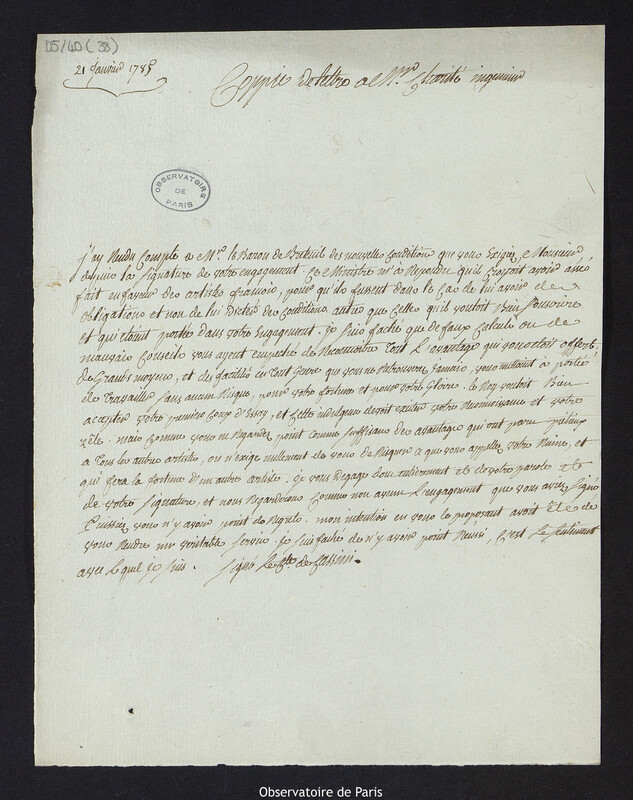 D5/40 (38)
21 Janvier 1785
Coppie de lettre a Mr. Charité ingenieur
OBSERVATOIRE
DE
PARIS
j'ay Rendu Compte a Mr. le Baron de Breteuil des nouvelles Conditions que vous Exigés, Monsieur
depuis la signature de votre engagement. Ce Ministre m'a Repondu qu'il Croyoit avoir assés
fait en faveur des artistes francois, pour qu'ils fussent dans le Cas de lui avoir des
obligations et non de lui Dicter des Conditions autres que Celles qu'il vouloit Bien souscrire
et qui étoient portées dans votre Engagement. Je suis faché que de faux Calculs ou de
mauvais Conseils vous ayent empeché de Reconnoitre Tout l'avantage qui vous étoit offert,
de Grands moyens, et des facilités en Tout Genre que vous ne Retrouverés Jamais, vous mettant à portée
de Travailler sans aucun Risque, pour votre fortune et pour votre Gloire. Le Roy vouloit Bien
accepter votre premier Coup d'Essay, et Cette indulgence devoit exciter votre Reconnoissance et votre
zêle. mais Comme vous ne Regardés point Comme suffisans des avantages qui ont paru précieux
a Tous les autres artistes, on n'exige nullement de vous de Risquer a que vous appellés votre Ruine, et
qui fera la fortune d'un autre artiste. Je vous degage donc entierement et de votre parole et
de votre signature, et nous Regarderons Comme non avenu l'engagement que vous aviés signé
Puissiés vous n'y avoir point de Regrets. mon intention en vous le proposant avoit été de
vous Rendre un véritable service. Je suis faché de n'y avoir point Reussi, C'est le sentiment
avec lequel je suis. signé le Cte. de Cassini.
Observatoire de Paris